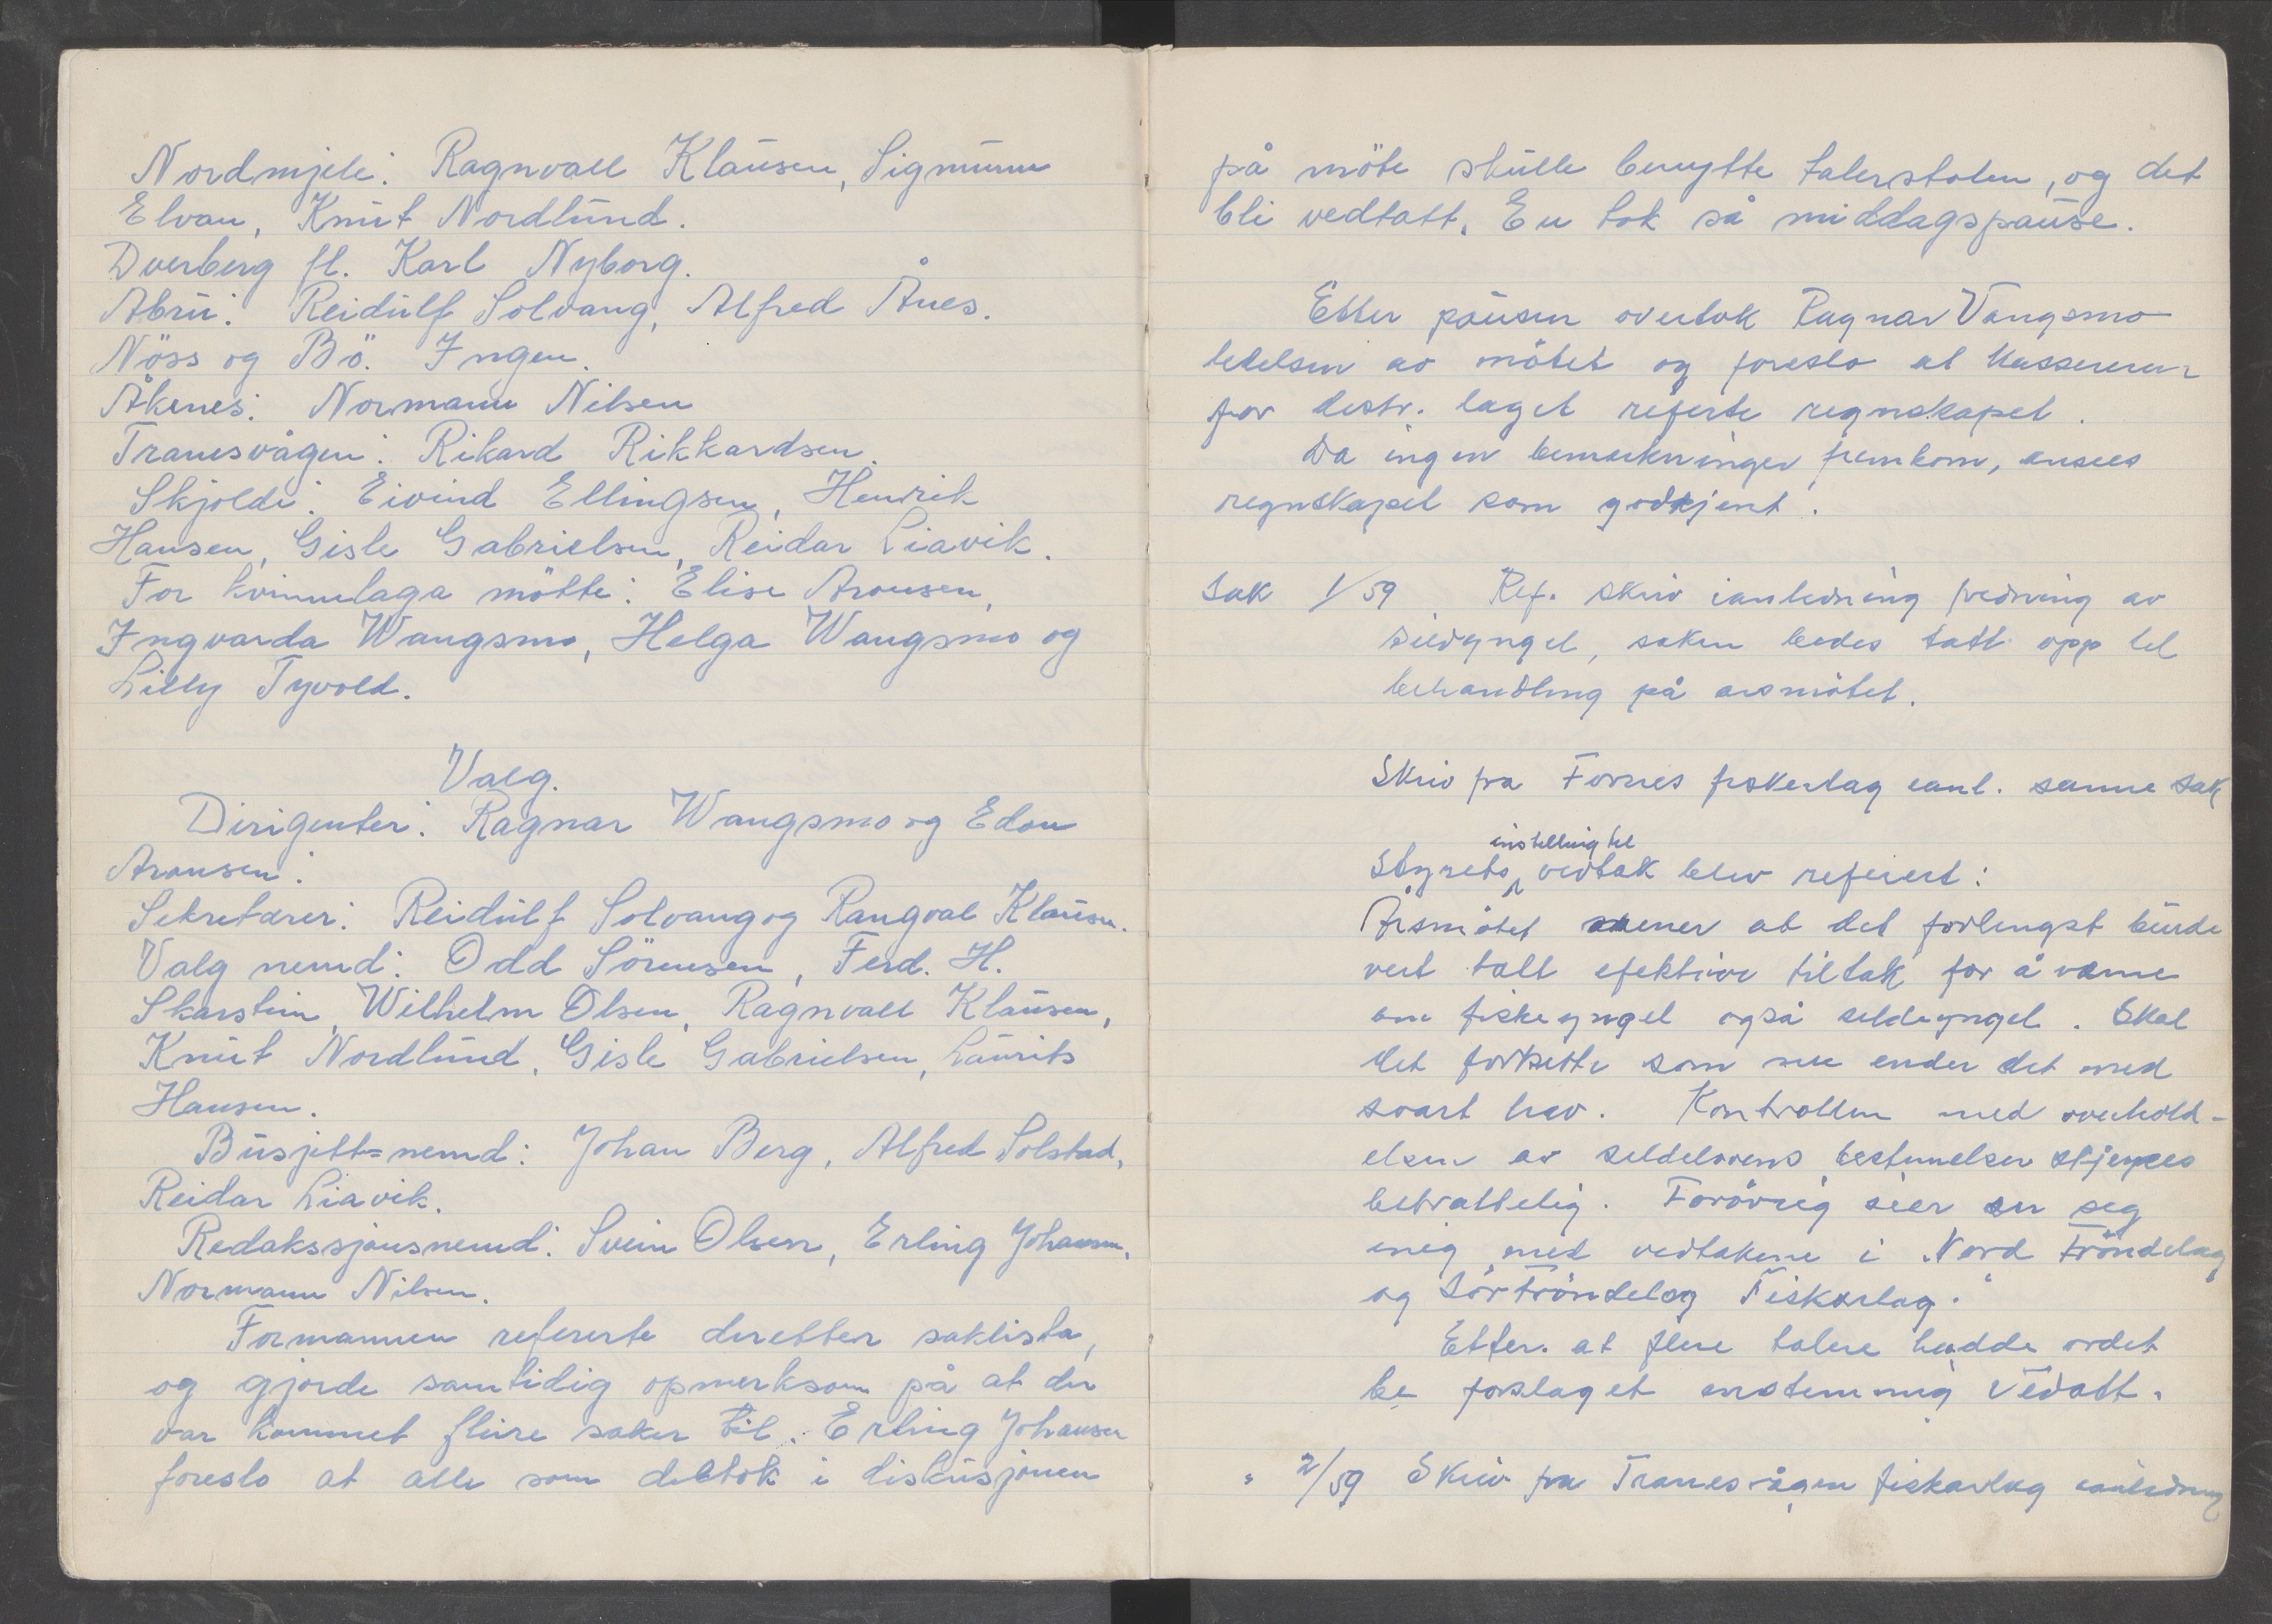 Nordmjele: Ragnvall Klausen, Sigmunn
Elvan, Knut Nordlund.
Dverberg fl. Karl Nyborg.
Åbru: Reidulf Solvang, Alfred Ånes.
Nöss og Bö. Ingen.
Åknes: Normann Nilsen
Tranesvågen: Rikard Rikkardsen.
Skjoldi: Eivind Ellingsen, Henrik
Hansen, Gisle Gabrielsen, Reidar Liavik.
For kvinnelaga mötte: Elise Aronsen,
Ingvarda Wangsmo, Helga Wangsmo og
Lilly Tyvold.
Valg.
Dirigenter: Ragnar Wangsmo og Edon
Aronsen:
Sekretærer: Reidulf Solvang og Rangval Klausen.
Valg nemd: Odd Sörensen, Ferd. H.
Skarstein, Wilhelm Olsen, Ragnvall Klausen,
Knut Nordlund, Gisle Gabrielsen, Laurits
Hansen.
Busjett=nemd: Johan Berg, Alfred Solstad,
Reidar Liavik.
Redakssjonsnemd: Svein Olsen, Erling Johansen,
Normann Nilsen.
Formannen refererte deretter saklista,
og gjorde samtidig opmerksom på at der
var kommet fleire saker til. Erling Johansen
foreslo at alle som deltok i diskusjonen
på möte skulle benytte talerstolen, og det
bli vedtatt. En tok så middagspause.
Etter pausen overtok Ragnar Vangsmo
ledelsen av mötet og foreslo at kassereren
for destr. laget referte regnskapet.
Da ingen bemerkninger fremkom, ansees
regnskapet som godkjent.
Sak 1/59 Ref. skriv ianledning fredning av
sildyngel, saken bedes tatt opp til
behandling på årsmötet.
Skriv fra Fornes fiskerlag ianl. samme sak
instelling til
Styrets vedtak blev referert:
Årsmötet mener at det forlengst burde
vert tatt efektive tiltak for å verne
om fiskeyngel også sildeyngel. Skal
det fortsette som nu ender det med
svart hav. Kontrollen med overhold-
elsen av sildelovens bestemelser skjerpes
betraktelig. Forövrig sier en seg
enig med vedtakene i Nord Tröndelag
og Sör Tröndelag Fiskarlag."
Etter at flere talere hadde ordet
ble forslaget enstemmig vedatt.
" 2/59 Skriv fra Tranesvågen fiskarlag ianledning